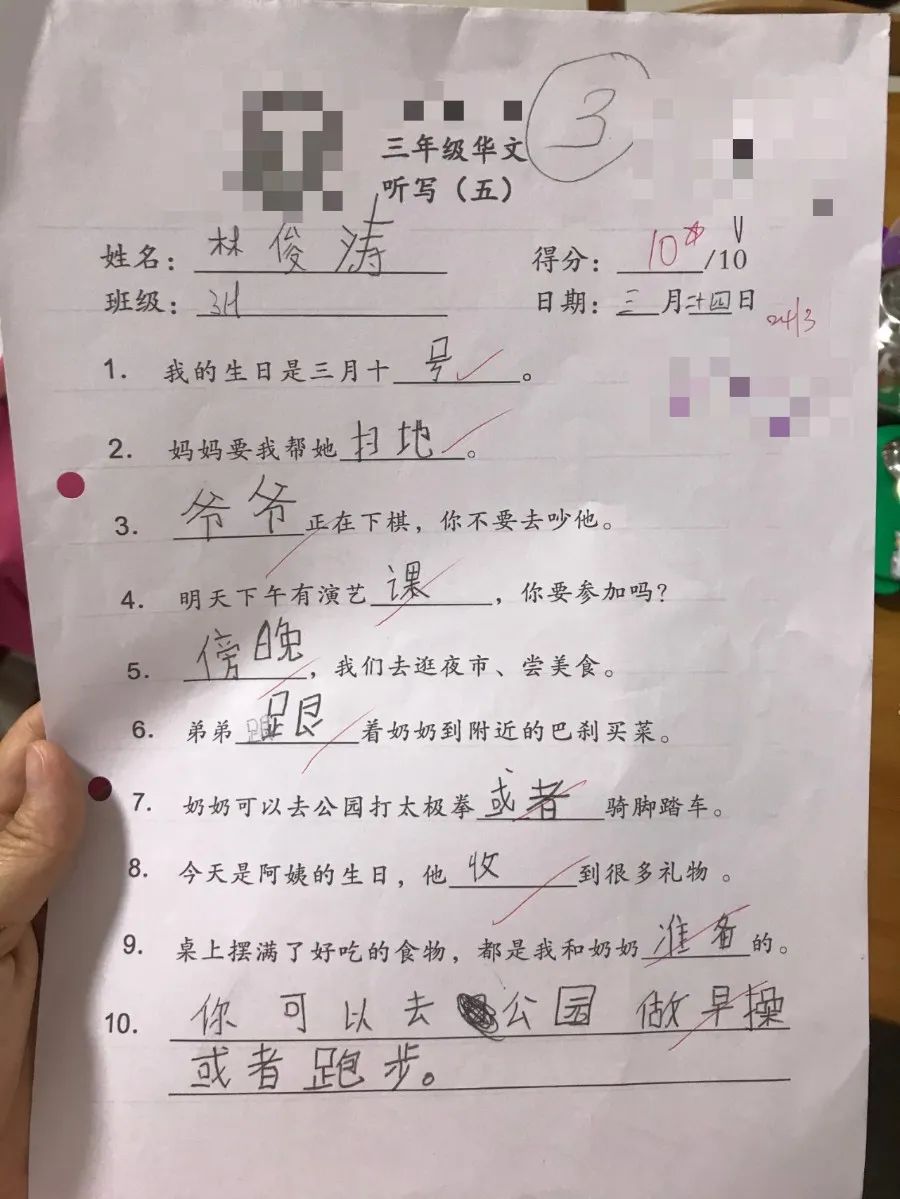 3
三年级华文
听写（五）
姓名：林俊涛 得分：10/10
班级：3H 日期：三月二十四日
24/3
1. 我的生日是三月十号。
2. 妈妈要我帮她扫地。
3. 爷爷正在下棋，你不要去吵他。
4. 明天下午有演艺课，你要参加吗？
5. 傍晚，我们去逛夜市、尝美食。
6. 弟弟跟着奶奶到附近的巴刹买菜。
7. 奶奶可以去公园打太极拳或者骑脚踏车。
8. 今天是阿姨的生日，他收到很多礼物。
9. 桌上摆满了好吃的食物，都是我和奶奶准备的。
10. 你可以去公园做早操
或者跑步。